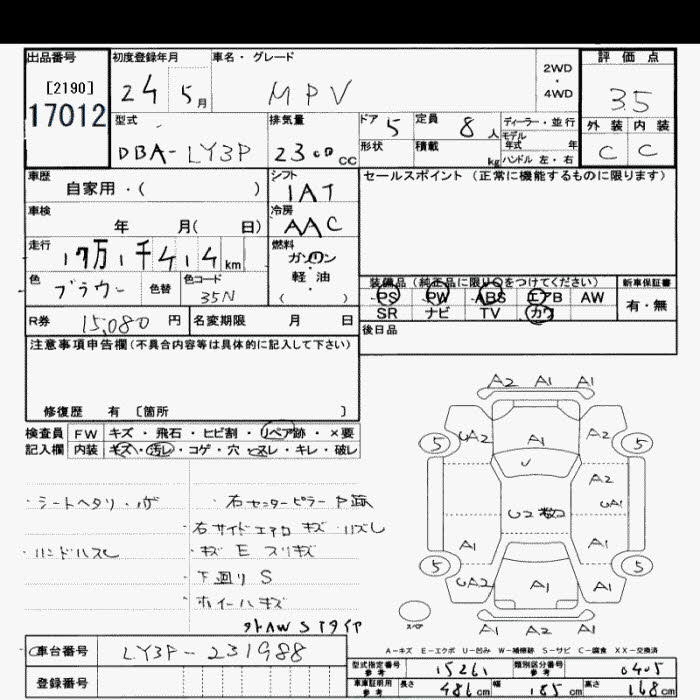 出品番号 初度登録年月 車名・グレード 評価点
[2190] 24 5月 MPV 2WD・4WD 35
17012
型式 排気量 ドア 5 定員 8人 ディーラー・並行 外装 内装
DBA-LY3P 2300cc 形状 積載 kg モデル年式 年 C C
ハンドル 左・右
車歴 シフト セールスポイント(正常に機能するものに限ります)
自家用・( ) IAT
車検 冷房
年 月( 日) AAC
走行 燃料
17万1千414km ガソリン・軽油
( )
色 ブラウン 色替 色コード 35N
装備品(純正品に限り○をつけてください) 新車保証書
PS PW ABS エアB AW 有・無
SR ナビ TV カワ
R券 15,080円 名変期限 月 日 後日品
注意事項申告欄(不具合内容等は具体的に記入して下さい)
修復歴 有 〔箇所 〕
検査員 FW キズ・飛石・ヒビ割・リペア跡・×要
記入欄 内装 キズ・汚レ・コゲ・穴・スレ・キレ・破レ
A2 A1 A1
5 UA2 A1 A2 5
A2
U2 UA1
A1 A1
5 UA2 A1 A1 5
A1 A2 A1
・シートヘタリ・
・右センターピラー P跡
・右サイドエアロ キズ
・ハンドルスレ
・キズ E スリキズ
・下廻り S
・ホイールキズ
外AW Sタイヤ
スペア
A-キズ E-エクボ U-凹み W-補修跡 S-サビ C-腐食 XX-交換済
車台番号 LY3P-231988
登録番号
型式指定番号 参考 15261 類別区分番号 参考 0405
車庫証明用 参考 長さ 486cm 幅 185cm 高さ 168cm